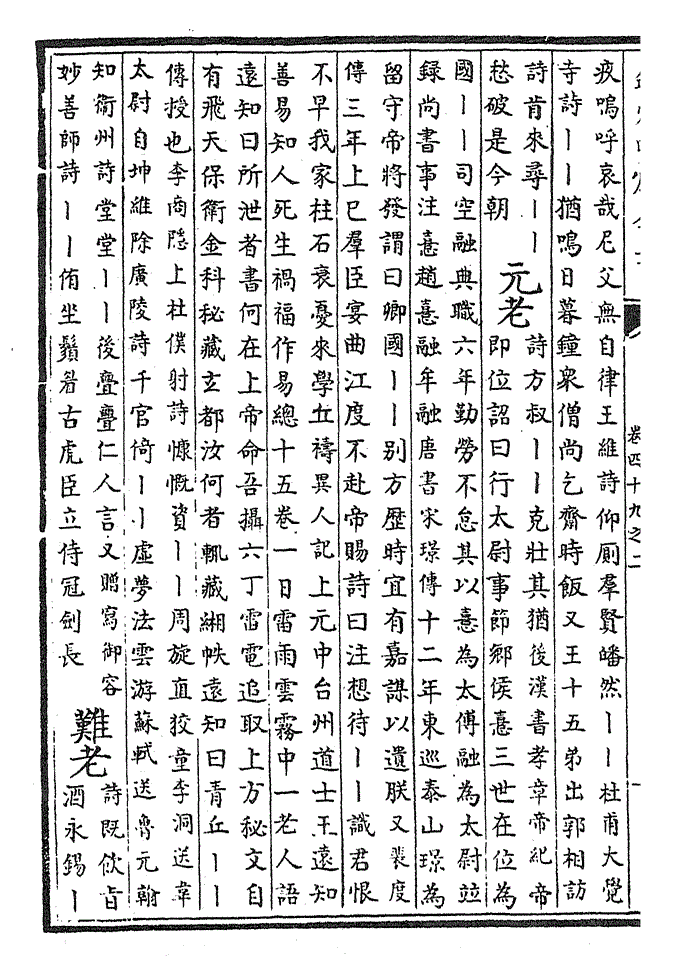 卷四十九之二
疲嗚呼哀哉尼父無自律王維詩仰厠羣賢皤然丨丨杜甫大覺
寺詩丨丨猶鳴日暮鐘衆僧尚乞齋時飯又王十五弟出郭相訪
詩肯來尋丨丨
愁破是今朝
元老
詩方叔丨丨克壯其猶後漢書孝章帝紀帝
即位詔曰行太尉事節鄉侯憙三世在位為
國丨丨司空融典職六年勤勞不怠其以憙為太傅融為太尉竝
錄尚書事注憙趙憙融牟融唐書宋璟傳十二年東巡泰山璟為
留守帝將發謂曰卿國丨丨别方歴時宜有嘉謀以遺朕又裴度
傳三年上巳羣臣宴曲江度不赴帝賜詩曰注想待丨丨識君恨
不早我家柱石衰憂來學丘禱異人記上元中台州道士王遠知
善易知人死生禍福作易總十五卷一日雷雨雲霧中一老人語
遠知曰所泄者書何在上帝命吾攝六丁雷電追取上方秘文自
有飛天保衛金科秘藏玄都汝何者輒藏緗帙遠知曰青丘丨丨
傳授也李商隱上杜僕射詩慷慨資丨丨周旋直狡童李洞送韋
太尉自坤維除廣陵詩千官倚丨丨虛夢法雲游蘇軾送魯元翰
知衛州詩堂堂丨丨後亹亹仁人言又贈寫御容
妙善師詩丨丨侑坐鬚眉古虎臣立侍冠劍長
難老
詩既飲旨
酒永錫丨